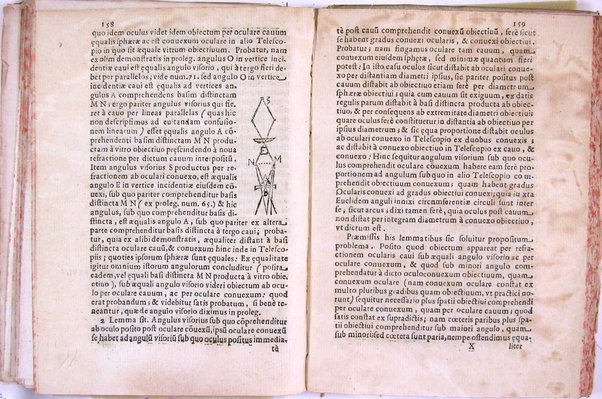 158
quo idem oculus videt idem obiectum per oculare cauum
equalis sphæræ ac est conuexum oculare in alio Telesco-
pio in quo sit æquale vitrum obiectiuum. Probatur, nam
ex olim demonstratis in proleg. angulus O in vertice inci-
dentiæ caui est æqualis angulo visorio, qui à tergo fieri de-
bet per parallelas, vide num. 71. sed angulo O in vertice
incidentiæ caui est æqualis ad vertices an-
gulus A comprehendens basim distinctam
M N; ergo pariter angulus visorius qui fie-
ret à cauo per lineas parallelas (quas hic
non descripsimus ad euitandam confusio-
nem linearum) esset equalis angulo A cō-
prehendenti basim distinctam M N produ-
ctam à vitro obiectiuo prescindendo à noua
refractione per dictum cauum interpositū.
Item angulus visorius S productus per re-
fractionem ab oculari conuexo, est æqualis
angulo E in vertice incidentiæ eiusdem cō-
uexi, sub quo pariter comprehenditur basis
distincta M N (ex proleg. num. 65.) & hic
angulus, sub quo comprehenditur basis di-
stincta, est æqualis angulo A, sub quo pariter ex altera
parte comprehenditur basis distincta à tergo caui; probatur,
quia, ex alibi demonstratis, æqualiter distant à basi
distincta oculare cauū, & conuexum hinc inde in Telesco-
piis; quoties ipsorum spheræ sunt æquales; Ex equalitate
igitur omnium istorum angulorum concluditur (posita
eadem, vel equali basi distincta M N producta à vitro obie-
ctiuo), sub æquali angulo visorio videri obiectum ab ocu-
lo per oculare cauum, ac per oculare conuexum: quod
erat probandum; & videbitur satis probatum, si benè te-
neantur, quæ de angulo diximus in proleg.
2 Lemma sit. Angulus visorius sub quo cōprehenditur
ab oculo posito post oculare cōuexū, ipsū oculare conuexū
se habet ad angulū visoriū sub quo oculus positus immedia-
tè
S
E
N
M
A
O
159
tè post cauū comprehendit conuexū obiectiuū, ferè sicut
se habent gradus conuexi ocularis, & conuexi obiectiui.
Probatur; nam fingamus oculare tam cauum, quam
conuexum eiusdem spheræ, sed minimæ quantum fieri
potest: In isto casu oculus sicut distabit ab oculari conue-
xo per distantiam diametri ipsius, sic pariter positus post
cauum distabit à conuexo obiectiuo etiam ferè per diametrum
sphæræ obiectiui; quia cum cauum sit exiguum, ex datis
regulis parum distabit à basi distincta producta ab obie-
ctiuo, & per consequens ab extremo diametri obiectiui
quare oculus ferè constituetur in distantia ab obiectiuo per
ipsius diametrum; & sic qua proportione distabit oculus
ab oculari conuexo in Telescopio ex duobus conuexis;
ac distabit à conuexo obiectiuo in Telescopio ex cauo, &
conuexo: Hinc sequitur angulum visorium sub quo ocu-
lus comprehendit oculare conuexum habere eam ferè pro-
portionem ad angulum subquo in alio Telescopio cō-
prehendit obiectiuum conuexum; quam habent gradus
Ocularis conuexi ad gradus obiectiui conuexi; quia iuxta
Euclidem anguli innixi circumferentiæ circuli sunt inter
se, sicut arcus; dixi tamen ferè, quia oculus post cauum
non distabit per integram diametrum à conuexo obiecti-
uo, vt dictum est.
Præmissis his lemmatibus sic soluitur propositum
problema. Posito quod obiectum appareat per refra-
ctionem ocularis caui subæquali angulo visorio, ac per
oculare conuexum, & quod sub minori angulo com-
prehendatur à dicto oculoconuexum obiectiuum, quam
conuexum oculare; (nam oculare conuexum constat ex
multo pluribus gradibus quam obiectiuum, vt practici no-
runt) sequitur necessario plus spatii obiectiui comprehendi
per oculare conuexum, quam per oculare cauum: quod
satis constat ex supradictis; nam cœteris paribus plus spa-
tii obiectiui comprehenditur sub maiori angulo, quam
sub minorised cœtera sunt paria, nempe ostendimus equa-
X
liter